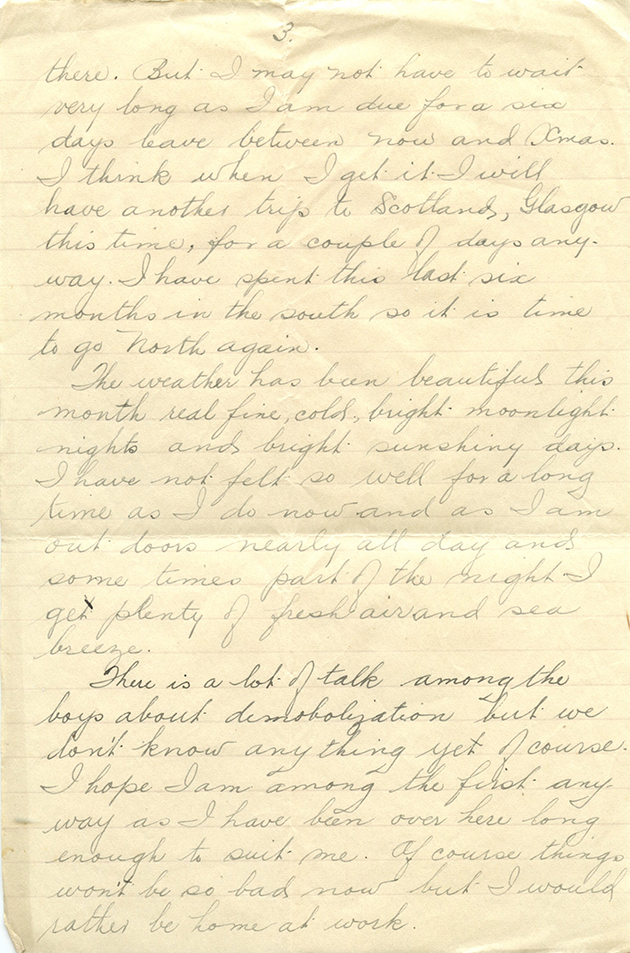 3.
there. But I may not have to wait
very long as I am due for a six
days leave between now and Xmas.
I think when I get it I will
have another trip to Scotland, Glasgow
this time, for a couple of days any-
way. I have spent this last six
months in the south so it is time
to go North again.
The weather has been beautiful this
month real fine, cold, bright moonlight
nights and bright sunshiny days.
I have not felt so well for a long
time as I do now and as I am
out doors nearly all day and
some times part of the night I
get plenty of fresh air and sea
breeze.
There is a lot of talk among the
boys about demobolization but we
don't know any thing yet of course.
I hope I am among the first any-
way as I have been over here long
enough to suit me. Of course things
won't be so bad now but I would
rather be home at work.